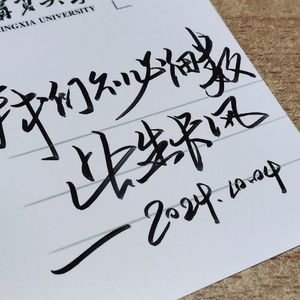 INGXIA UNIVERSITY
我们必细数
此生长风
— 2024.10.04